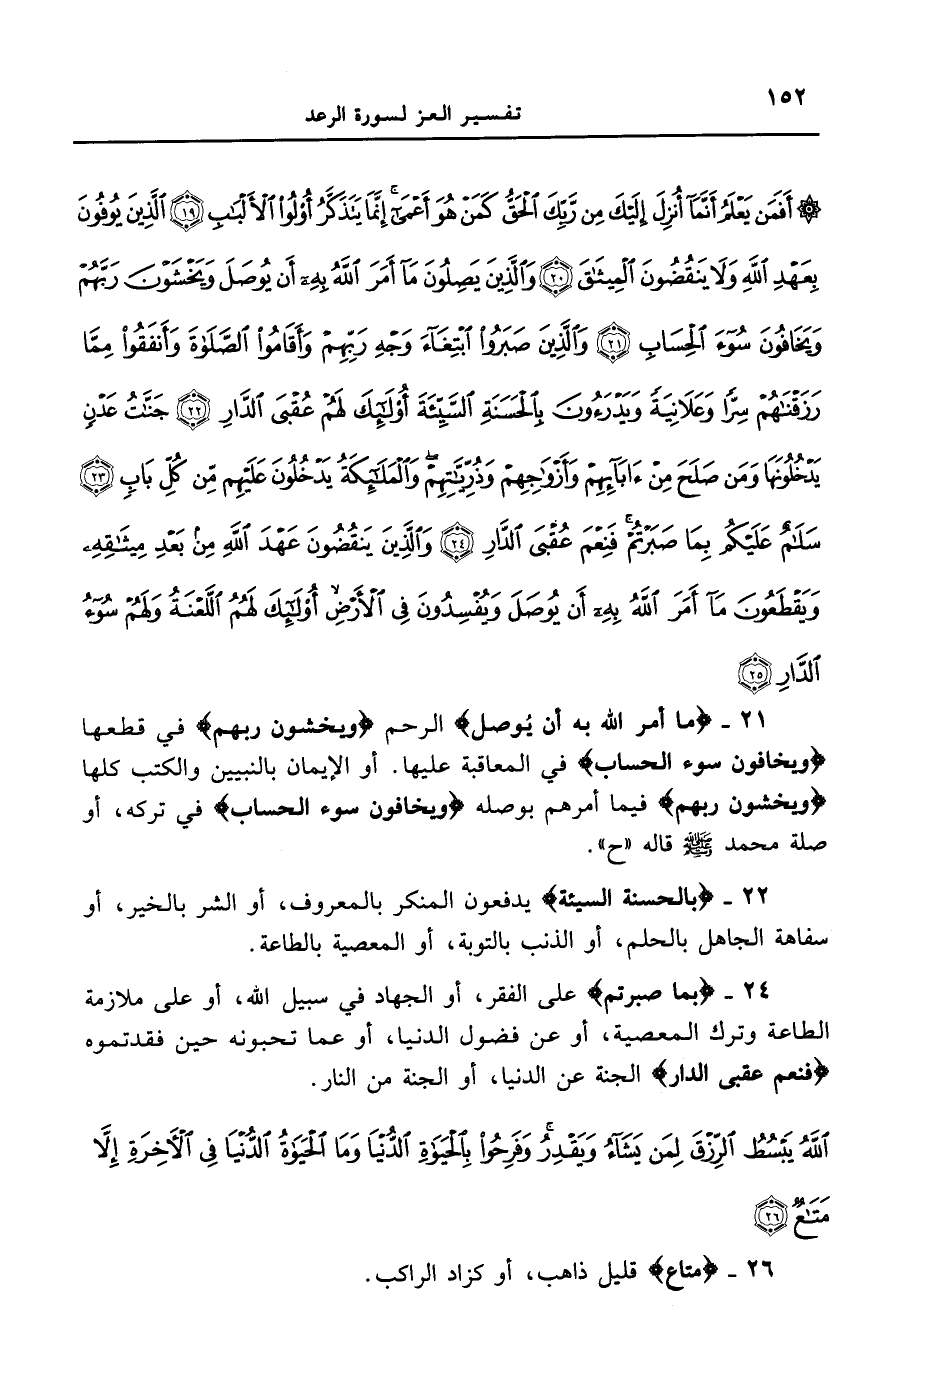 ١٥٢
تفسير العز لسورة الرعد
۞ أَفَمَن يَعْلَمُ أَنَّمَآ أُنزِلَ إِلَيْكَ مِن رَّبِّكَ ٱلْحَقُّ كَمَنْ هُوَ أَعْمَىٰٓ ۚ إِنَّمَا يَتَذَكَّرُ أُو۟لُوا۟ ٱلْأَلْبَـٰبِ ﴿١٩﴾ ٱلَّذِينَ يُوفُونَ
بِعَهْدِ ٱللَّهِ وَلَا يَنقُضُونَ ٱلْمِيثَـٰقَ ﴿٢٠﴾ وَٱلَّذِينَ يَصِلُونَ مَآ أَمَرَ ٱللَّهُ بِهِۦٓ أَن يُوصَلَ وَيَخْشَوْنَ رَبَّهُمْ
وَيَخَافُونَ سُوٓءَ ٱلْحِسَابِ ﴿٢١﴾ وَٱلَّذِينَ صَبَرُوا۟ ٱبْتِغَآءَ وَجْهِ رَبِّهِمْ وَأَقَامُوا۟ ٱلصَّلَوٰةَ وَأَنفَقُوا۟ مِمَّا
رَزَقْنَـٰهُمْ سِرًّا وَعَلَانِيَةً وَيَدْرَءُونَ بِٱلْحَسَنَةِ ٱلسَّيِّئَةَ أُو۟لَـٰٓئِكَ لَهُمْ عُقْبَى ٱلدَّارِ ﴿٢٢﴾ جَنَّـٰتُ عَدْنٍ
يَدْخُلُونَهَا وَمَن صَلَحَ مِنْ ءَابَآئِهِمْ وَأَزْوَٰجِهِمْ وَذُرِّيَّـٰتِهِمْ ۖ وَٱلْمَلَـٰٓئِكَةُ يَدْخُلُونَ عَلَيْهِم مِّن كُلِّ بَابٍ ﴿٢٣﴾
سَلَـٰمٌ عَلَيْكُم بِمَا صَبَرْتُمْ ۚ فَنِعْمَ عُقْبَى ٱلدَّارِ ﴿٢٤﴾ وَٱلَّذِينَ يَنقُضُونَ عَهْدَ ٱللَّهِ مِنۢ بَعْدِ مِيثَـٰقِهِۦ
وَيَقْطَعُونَ مَآ أَمَرَ ٱللَّهُ بِهِۦٓ أَن يُوصَلَ وَيُفْسِدُونَ فِى ٱلْأَرْضِ ۙ أُو۟لَـٰٓئِكَ لَهُمُ ٱللَّعْنَةُ وَلَهُمْ سُوٓءُ
ٱلدَّارِ ﴿٢٥﴾
٢١ ـ ﴿ما أمر الله به أن يُوصل﴾ الرحم ﴿ويخشون ربهم﴾ في قطعها
﴿ويخافون سوء الحساب﴾ في المعاقبة عليها. أو الإيمان بالنبيين والكتب كلها
﴿ويخشون ربهم﴾ فيما أمرهم بوصله ﴿ويخافون سوء الحساب﴾ في تركه، أو
صلة محمد ﷺ قاله «ح».
٢٢ ـ ﴿بالحسنة السيئة﴾ يدفعون المنكر بالمعروف، أو الشر بالخير، أو
سفاهة الجاهل بالحلم، أو الذنب بالتوبة، أو المعصية بالطاعة.
٢٤ ـ ﴿بما صبرتم﴾ على الفقر، أو الجهاد في سبيل الله، أو على ملازمة
الطاعة وترك المعصية، أو عن فضول الدنيا، أو عما تحبونه حين فقدتموه
﴿فنعم عقبى الدار﴾ الجنة عن الدنيا، أو الجنة من النار.
ٱللَّهُ يَبْسُطُ ٱلرِّزْقَ لِمَن يَشَآءُ وَيَقْدِرُ ۚ وَفَرِحُوا۟ بِٱلْحَيَوٰةِ ٱلدُّنْيَا وَمَا ٱلْحَيَوٰةُ ٱلدُّنْيَا فِى ٱلْـَٔاخِرَةِ إِلَّا
مَتَـٰعٌ ﴿٢٦﴾
٢٦ ـ ﴿متاع﴾ قليل ذاهب، أو كزاد الراكب.